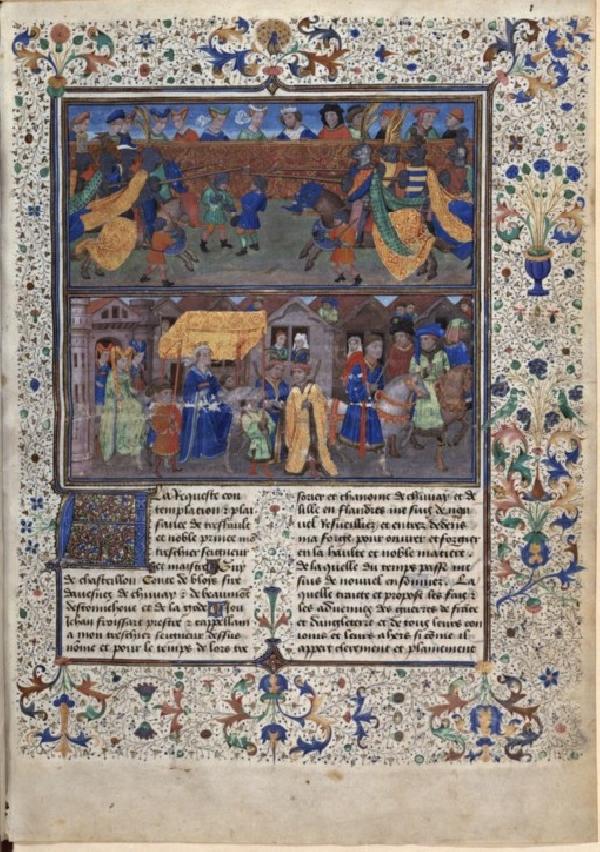 La Requeste con
templation & plai
sance de treshault
et noble prince mo
treschier seigneur
et maistre Guy
de chasteillon Conte de blois sire
davesnes de chimay & de beaumont
de Jou
Jehan froissart prestre & chappellain
a mon treschier seigneur dessus
nomme et pour le temps de lors tre
sorier et chanoine de chimay et de
lille en flandres me suis de nou
uel Resueilliez et entrez dedens
ma forge pour ouurer et forgier
en la haulte et noble matiere
de laquelle du temps passe me
suis de nouuel La
quelle traicte et propose les fais &
les aduenues des guerres de france
et dangleterre et de tous leurs con
ioins et leurs ahers si come il
appert clerement et plainement